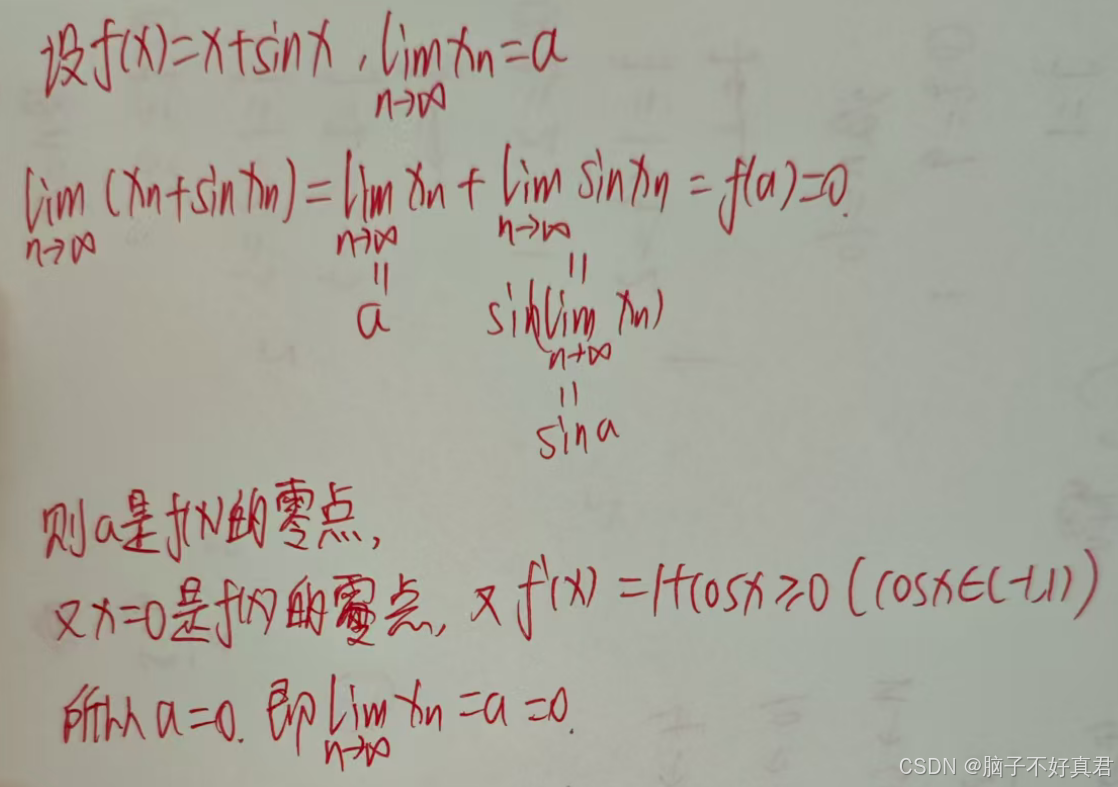 设f(x)=x+sinx,lim xn=a
n→∞
lim (xn+sinxn)=lim xn+lim sinxn=f(a)=0.
n→∞ n→∞ n→∞
|| ||
a sin(lim xn)
n→∞
||
sina
则a是f(x)的零点,
又x=0是f(x)的零点,又f'(x)=1+cosx≥0(cosx∈(-1,1))
所以a=0.即lim xn=a=0.
n→∞
CSDN @脑子不好真君